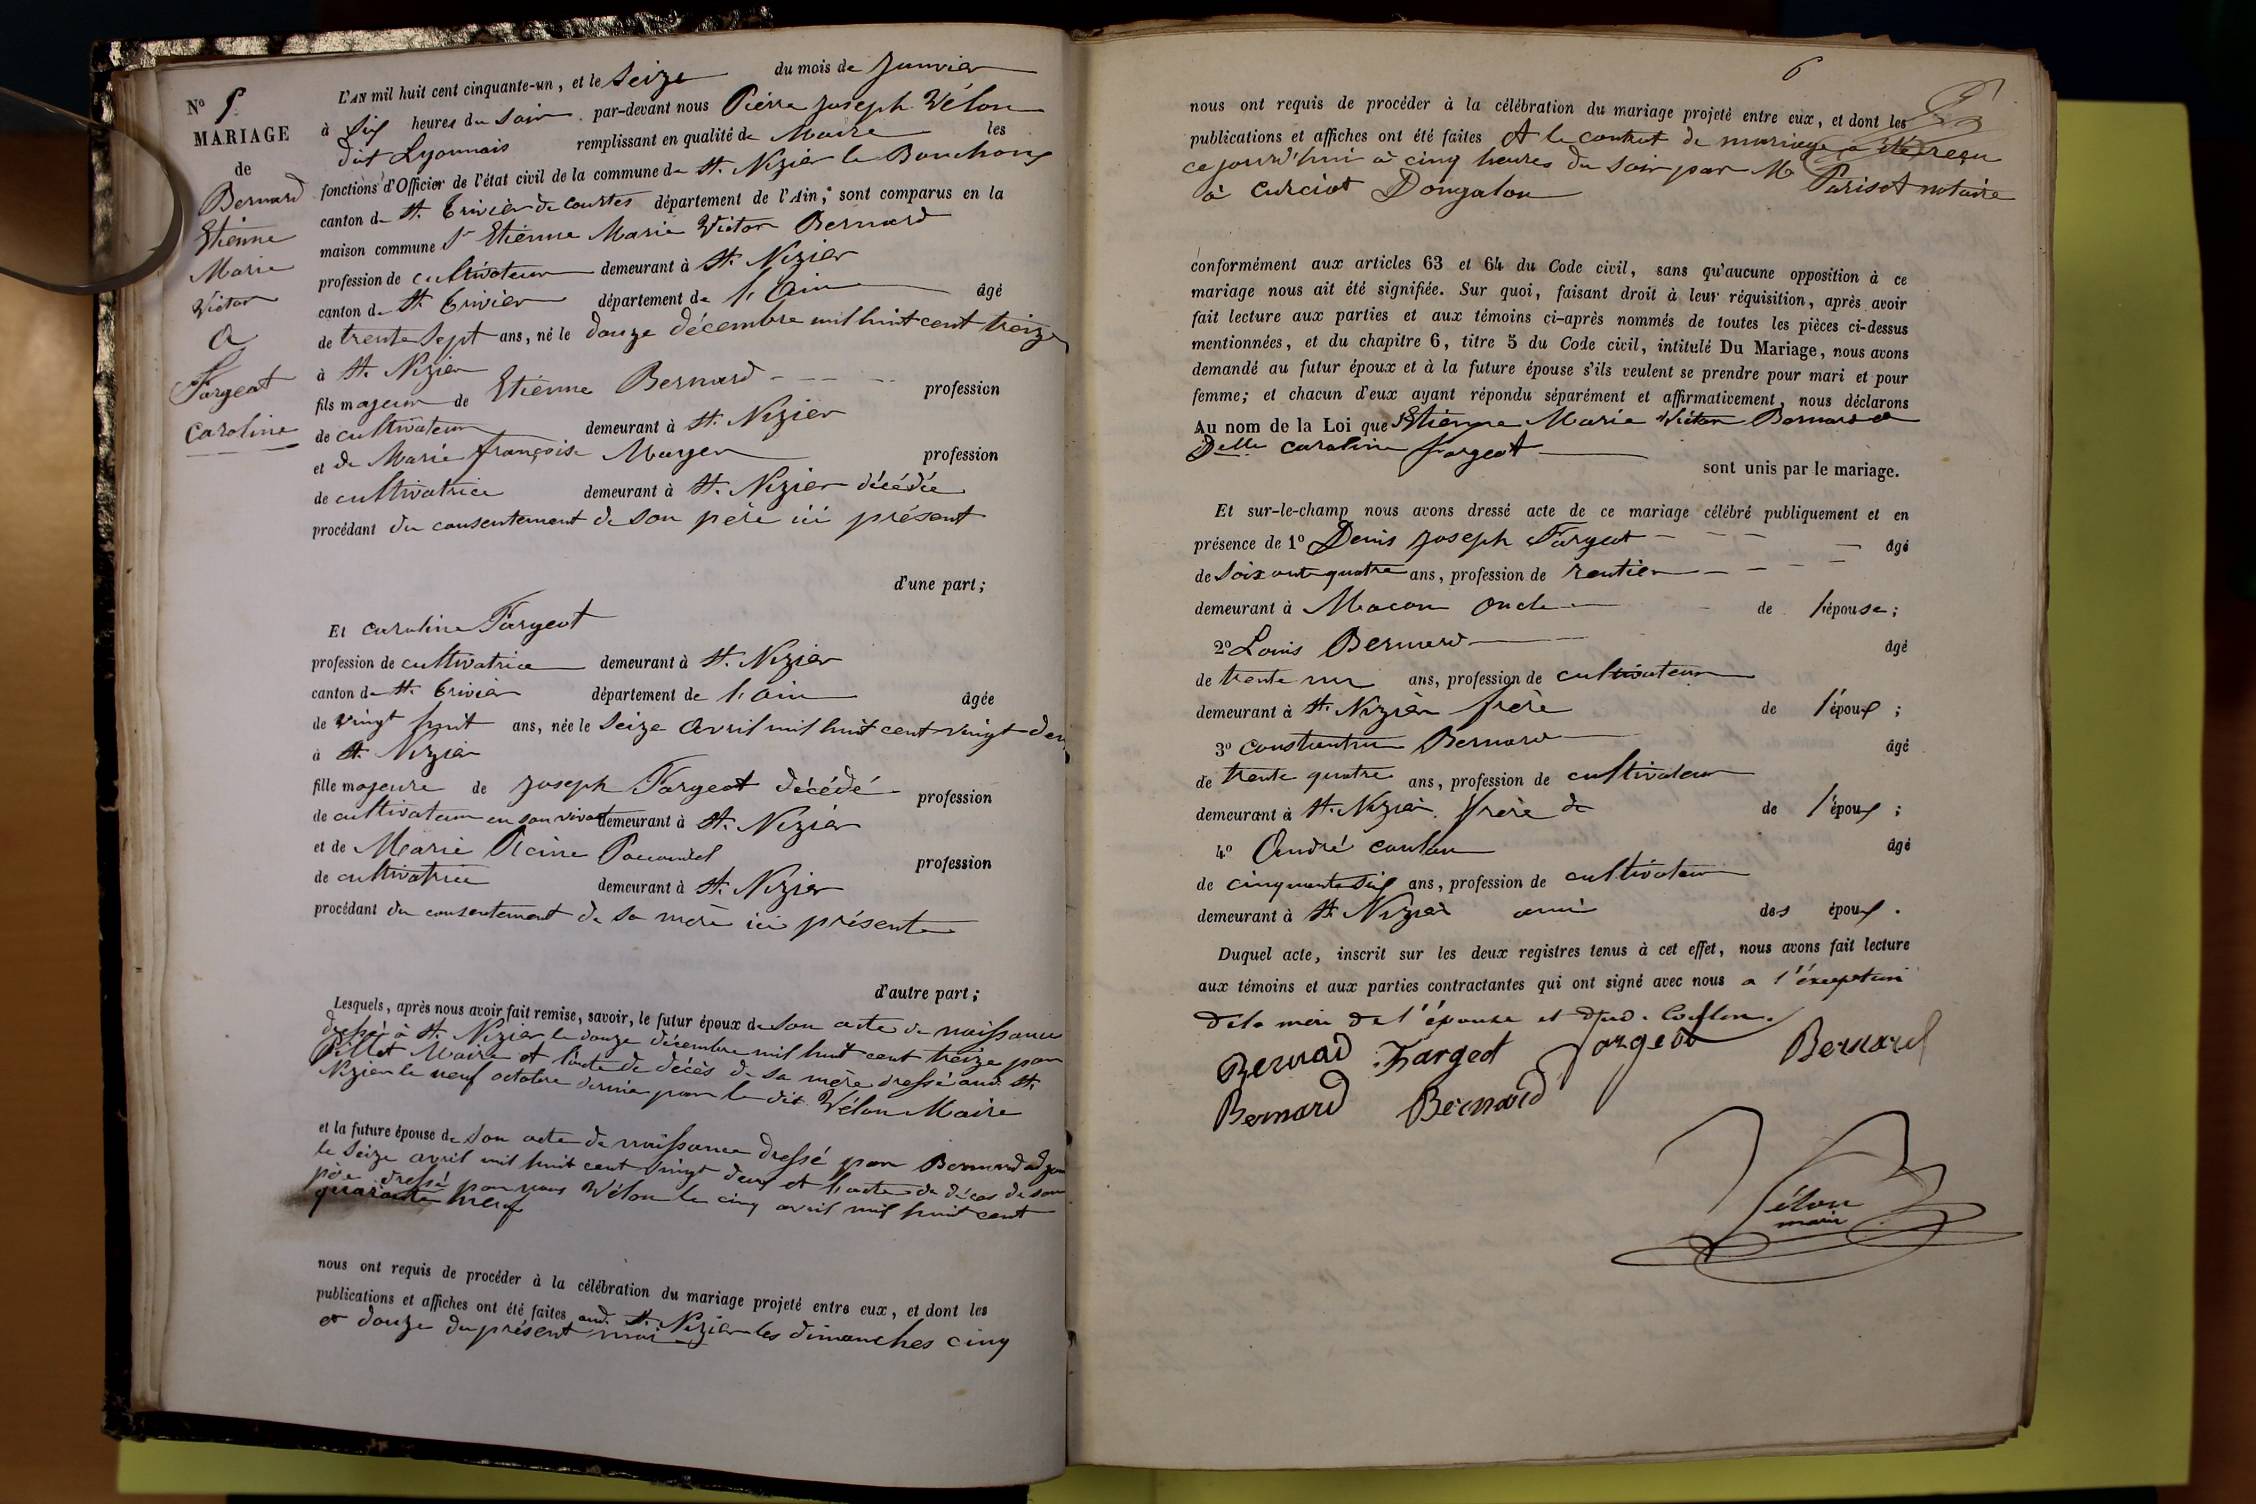 N°
MARIAGE
de
Bernard
Etienne
Marie
Victor
a
Fargeot
Caroline
L'AN mil huit cent cinquante-un, et le Seize du mois de Janvier
à Six heures du Soir, par-devant nous Pierre Joseph Vélon
dit Lyonnais remplissant en qualité de Maire les
fonctions d'Officier de l'état civil de la commune de St. Nizier le Bouchoux
canton de St. Trivier de Courtes département de l'Ain; sont comparus en la
maison commune Sr Etienne Marie Victor Bernard
profession de cultivateur demeurant à St. Nizier
canton de St. Trivier département de l'Ain âgé
de trente Sept ans, né le douze décembre mil huit cent treize
à St. Nizier
fils majeur de Etienne Bernard profession
de cultivateur demeurant à St. Nizier
et de Marie françoise profession
de cultivatrice demeurant à St. Nizier décédée
procédant du consentement de son père ici présent
d'une part;
Et Caroline Fargeot
profession de cultivatrice demeurant à St. Nizier
canton de St. Trivier département de l'Ain âgée
de vingt huit ans, née le Seize Avril mil huit cent vingt deux
à St. Nizier
fille majeure de Joseph Fargeot décédé profession
de cultivateur en son vivant demeurant à St. Nizier
et de Marie Reine profession
de cultivatrice demeurant à St. Nizier
procédant du consentement de sa mère ici présente
d'autre part;
Lesquels, après nous avoir fait remise, savoir, le futur époux de son acte de naissance
dressé à St. Nizier le douze décembre mil huit cent treize par
Pillet Maire et l'acte de décès de sa mère dressé aud. St.
Nizier le neuf octobre dernier par le dit Vélon Maire
et la future épouse de Son acte de naissance dressé par Bernard adjoint
le Seize avril mil huit cent vingt deux et l'acte de décès de son
père dressé par nous Vélon le cinq avril mil huit cent
quarante neuf
nous ont requis de procéder à la célébration du mariage projeté entre eux, et dont les
publications et affiches ont été faites aud. St. Nizier les dimanches cinq
et douze du présent mois
6
nous ont requis de procéder à la célébration du mariage projeté entre eux, et dont les
publications et affiches ont été faites Et le contrat de mariage a été reçu
ce jourd'hui à cinq heures du Soir par Me Parisot notaire
à Curciat Dongalon
conformément aux articles 63 et 64 du Code civil, sans qu'aucune opposition à ce
mariage nous ait été signifiée. Sur quoi, faisant droit à leur réquisition, après avoir
fait lecture aux parties et aux témoins ci-après nommés de toutes les pièces ci-dessus
mentionnées, et du chapitre 6, titre 5 du Code civil, intitulé Du Mariage, nous avons
demandé au futur époux et à la future épouse s'ils veulent se prendre pour mari et pour
femme; et chacun d'eux ayant répondu séparément et affirmativement, nous déclarons
Au nom de la Loi que Etienne Marie Victor Bernard et
Delle Caroline fargeot
sont unis par le mariage.
Et sur-le-champ nous avons dressé acte de ce mariage célébré publiquement et en
présence de 1° Denis Joseph Fargeot âgé
de Soixante quatre ans, profession de rentier
demeurant à Macon oncle de l'épouse;
2° Louis Bernard âgé
de trente un ans, profession de cultivateur
demeurant à St. Nizier frère de l'époux;
3° Constantin Bernard âgé
de trente quatre ans, profession de cultivateur
demeurant à St. Nizier frère de de l'époux;
4° André Coulon âgé
de cinquante Six ans, profession de cultivateur
demeurant à St. Nizier ami des époux.
Duquel acte, inscrit sur les deux registres tenus à cet effet, nous avons fait lecture
aux témoins et aux parties contractantes qui ont signé avec nous a l'éxception
de la mère de l'épouse et dud. Coulon.
Bernard Fargeot Fargeot Bernard
Bernard Bernard
Vélon
maire